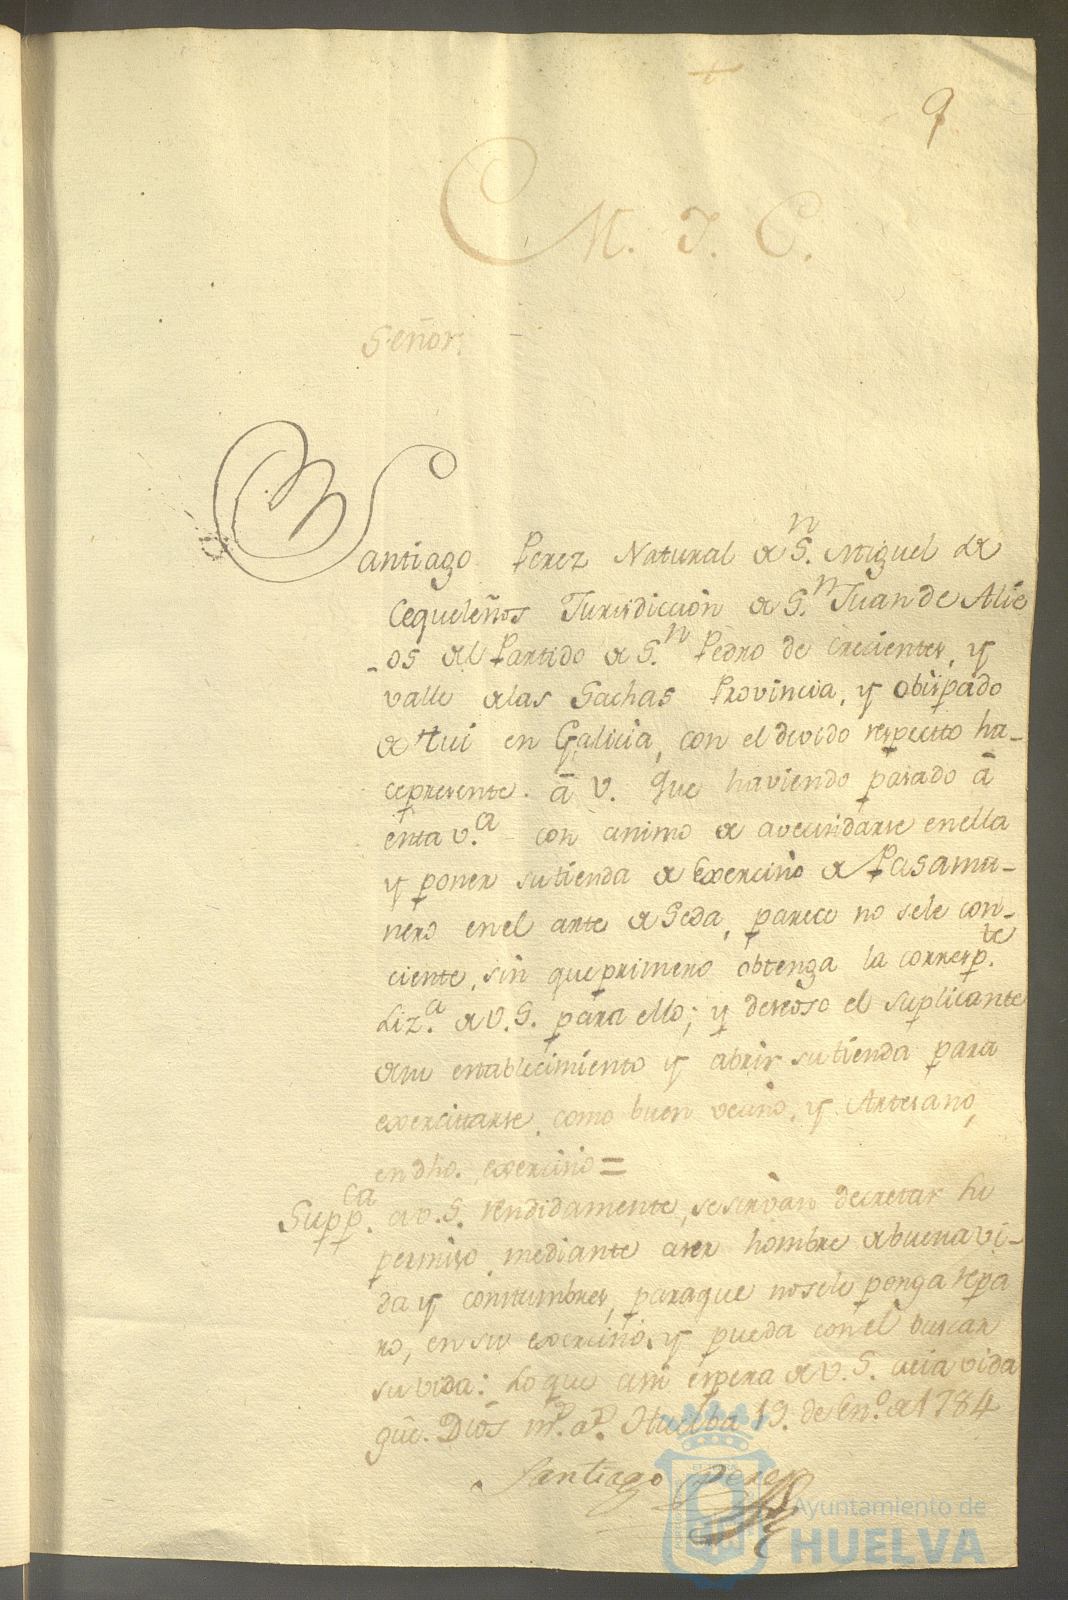 +
9
M. I. C.
Señor.
Santiago Perez Natural de S.n Miguel de
Cequeleños Jurisdiccion de S.n Juan de Alie
-os del Partido de S.n Pedro de Crecientes, y
valle de las Hachas Provincia, y obispado
de Tui en Galicia, con el devido respecto ha-
cepresente. â V. que haviendo pasado â
esta v.a con animo de avecindarse enella
y poner su tienda de Exercicio de Pasama-
nero enel arte de Seda, parece no sele con-
ciente, sin queprimero obtenga la corresp.te
Liz.a de V.S. para ello; y deseoso el suplicante
desu establecimiento y abrir su tienda para
exercitarse. como buen vecino, y Artesano,
en dho. exercicio =
Supp.ca a V.S. rendidamente, se sirvan decretar su
permiso mediante aser hombre debuena vi-
da y constumbres, paraque nosele ponga repa
ro, en su exercicio, y pueda con el buscar
su vida: Lo que asi espera de V.S. cuia vida
gûe. Dios m.s a.s Huelba 19. de En.o de 1784
Santiago Perez
Ayuntamiento de
HUELVA